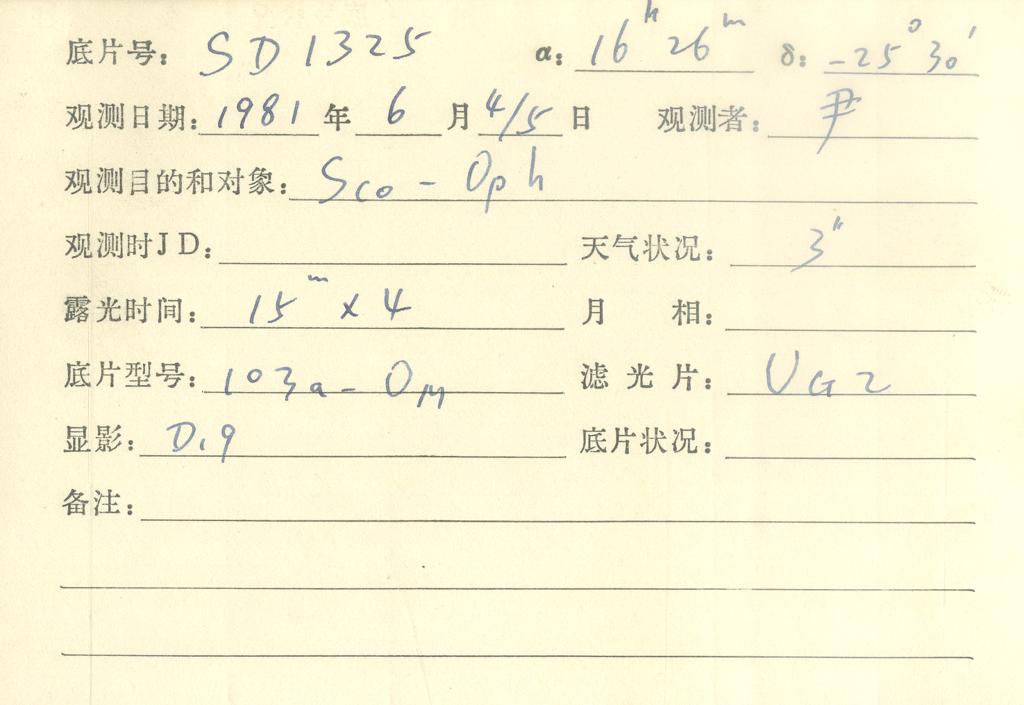 底片号: SD1325 α: 16ʰ26ᵐ δ: -25°30′
观测日期: 1981 年 6 月 4/5 日 观测者: 尹
观测目的和对象: Sco - Oph
观测时JD: 天气状况: 3″
露光时间: 15ᵐ x 4 月 相:
底片型号: 103a-O 滤光片: UG2
显影: D19 底片状况:
备注: